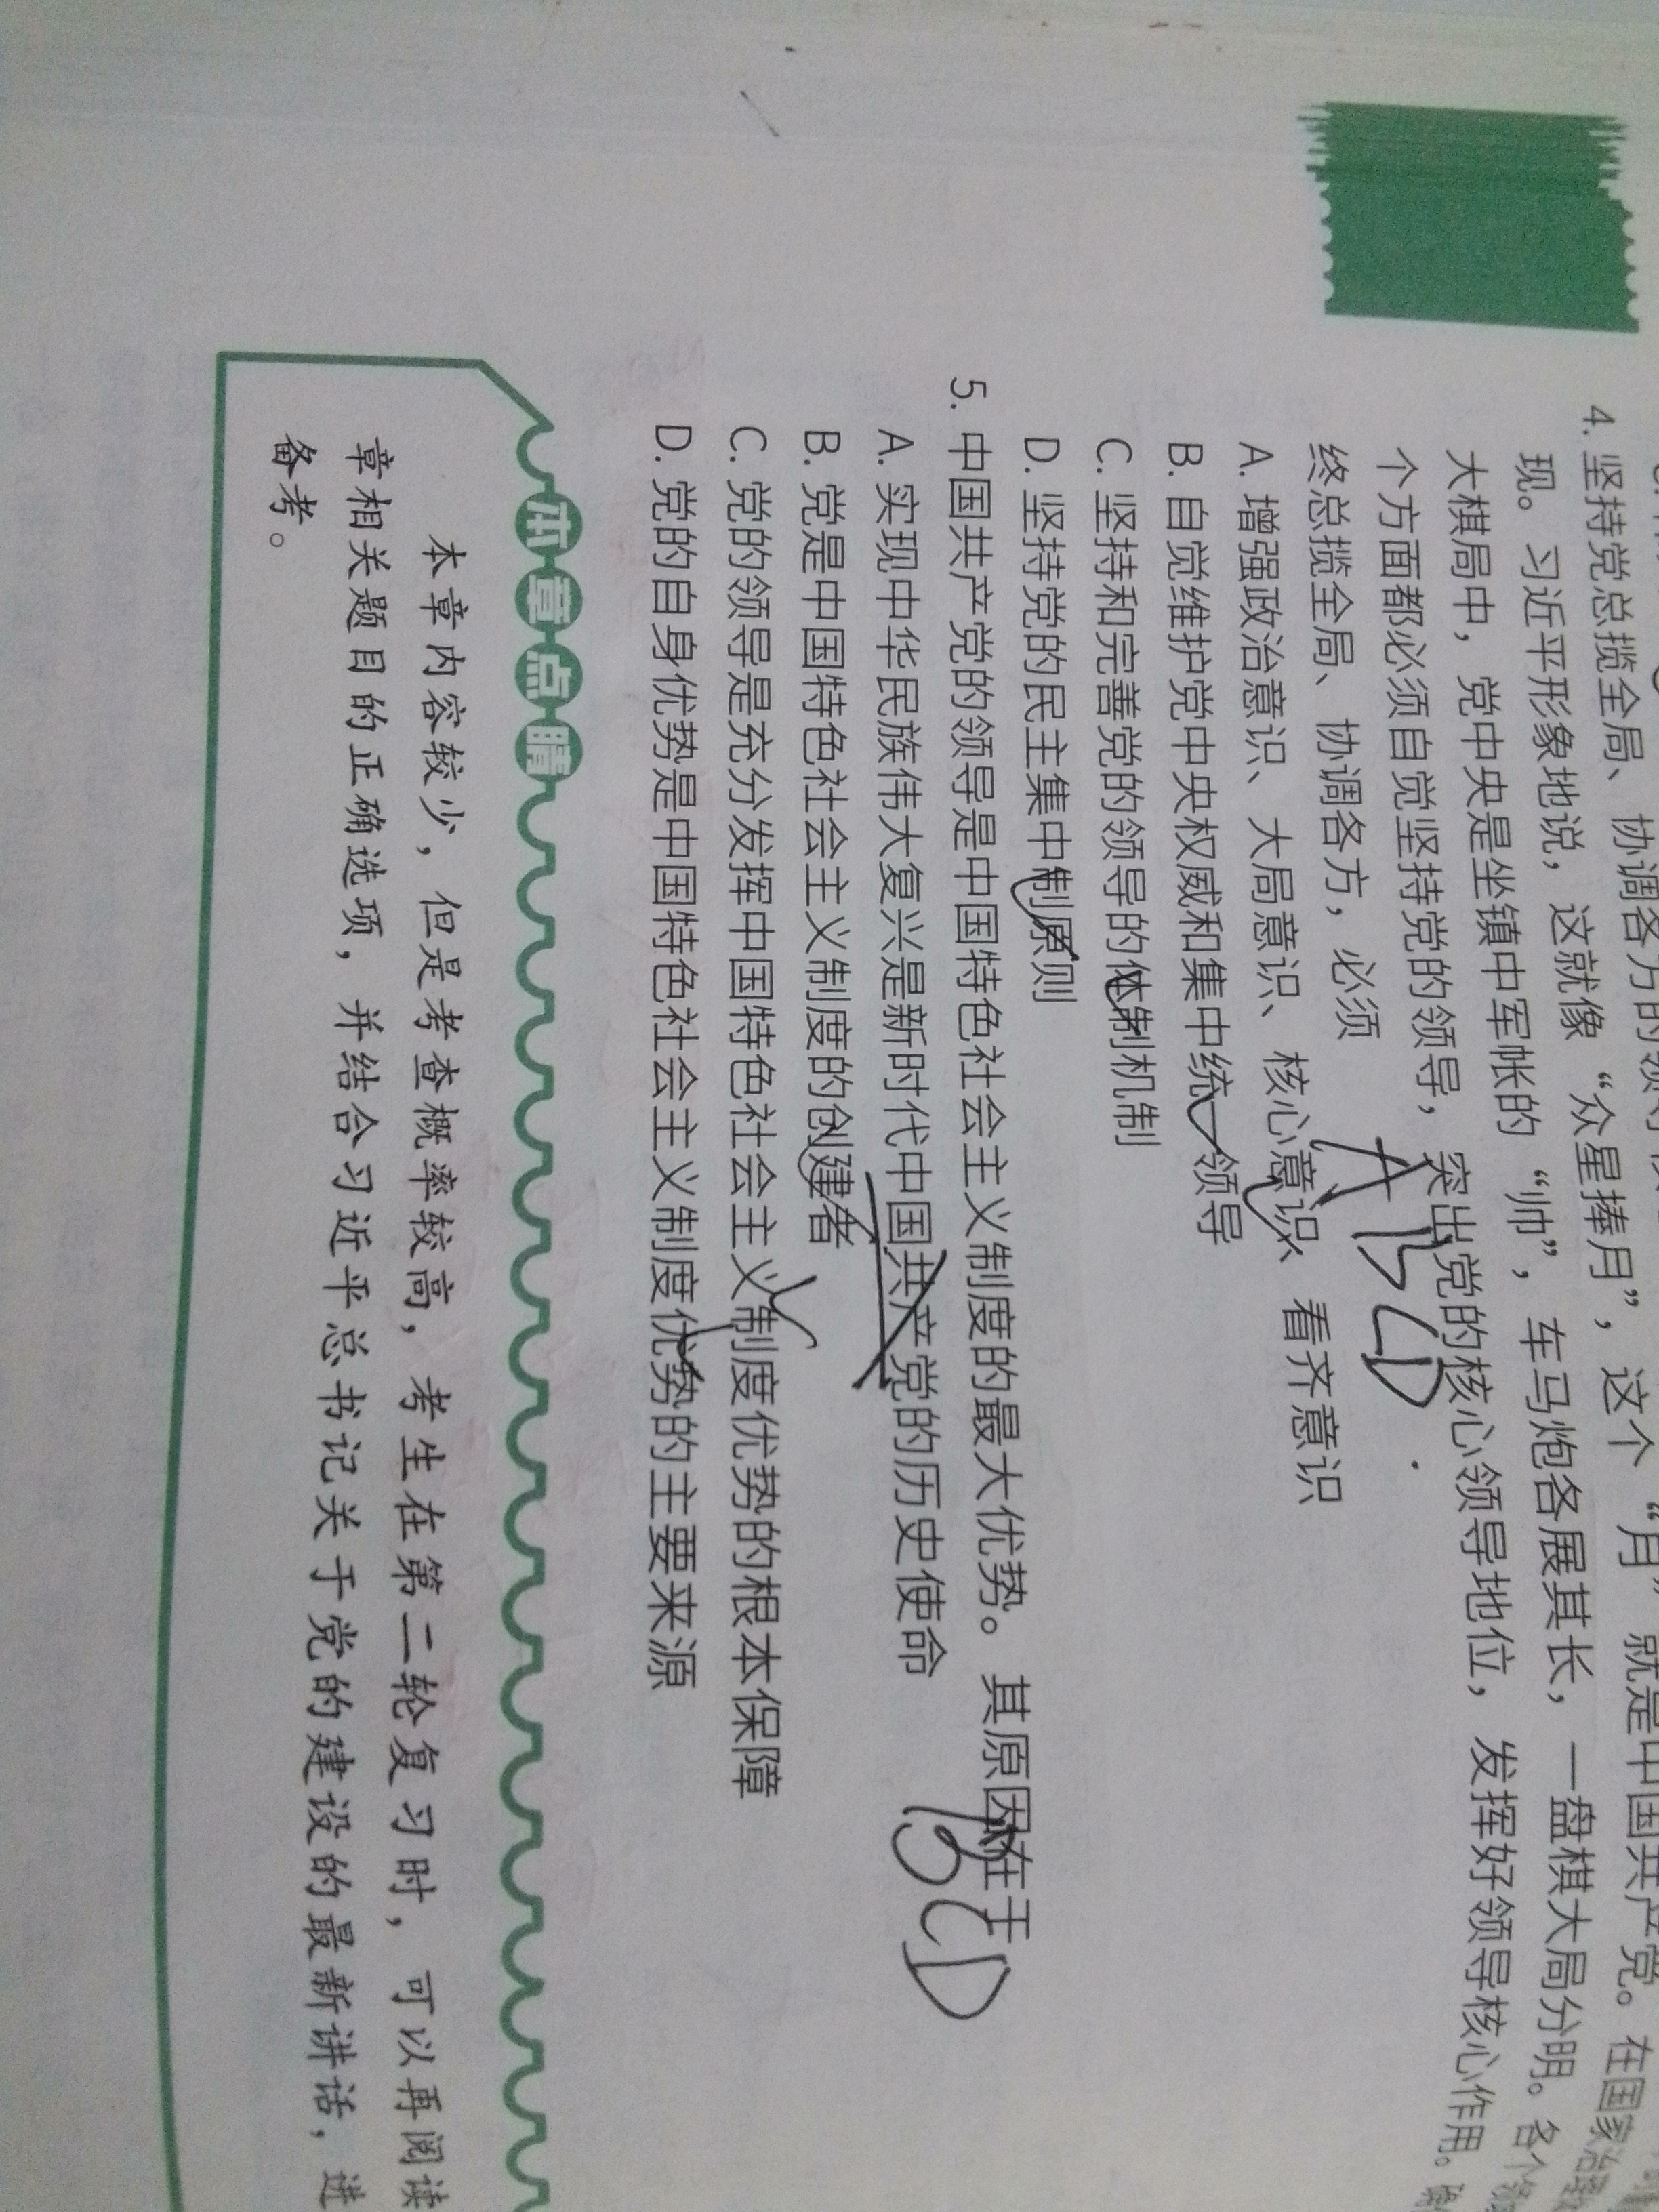 4. 坚持党总揽全局、协调各方的
现。习近平形象地说，这就像“众星捧月”，这个“月”就是中国共产党。在国家治理
大棋局中，党中央是坐镇中军帐的“帅”，车马炮各展其长，一盘棋大局分明。各个
个方面都必须自觉坚持党的领导，突出党的核心领导地位，发挥好领导核心作用。
终总揽全局、协调各方，必须
ABCD
A. 增强政治意识、大局意识、核心意识、看齐意识
B. 自觉维护党中央权威和集中统一领导
C. 坚持和完善党的领导的体制机制
D. 坚持党的民主集中制原则
5. 中国共产党的领导是中国特色社会主义制度的最大优势。其原因在于
BCD
A. 实现中华民族伟大复兴是新时代中国共产党的历史使命
B. 党是中国特色社会主义制度的创建者
C. 党的领导是充分发挥中国特色社会主义制度优势的根本保障
D. 党的自身优势是中国特色社会主义制度优势的主要来源
本章点睛
本章内容较少，但是考查概率较高，考生在第二轮复习时，可以再阅读
章相关题目的正确选项，并结合习近平总书记关于党的建设的最新讲话，进
备考。